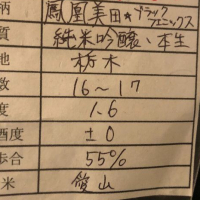 柄 鳳凰美田★ブラックフェニックス
質 純米吟醸、本生
地 栃木
数 16〜17
度 1.6
酒度 ±0
歩合 55%
米